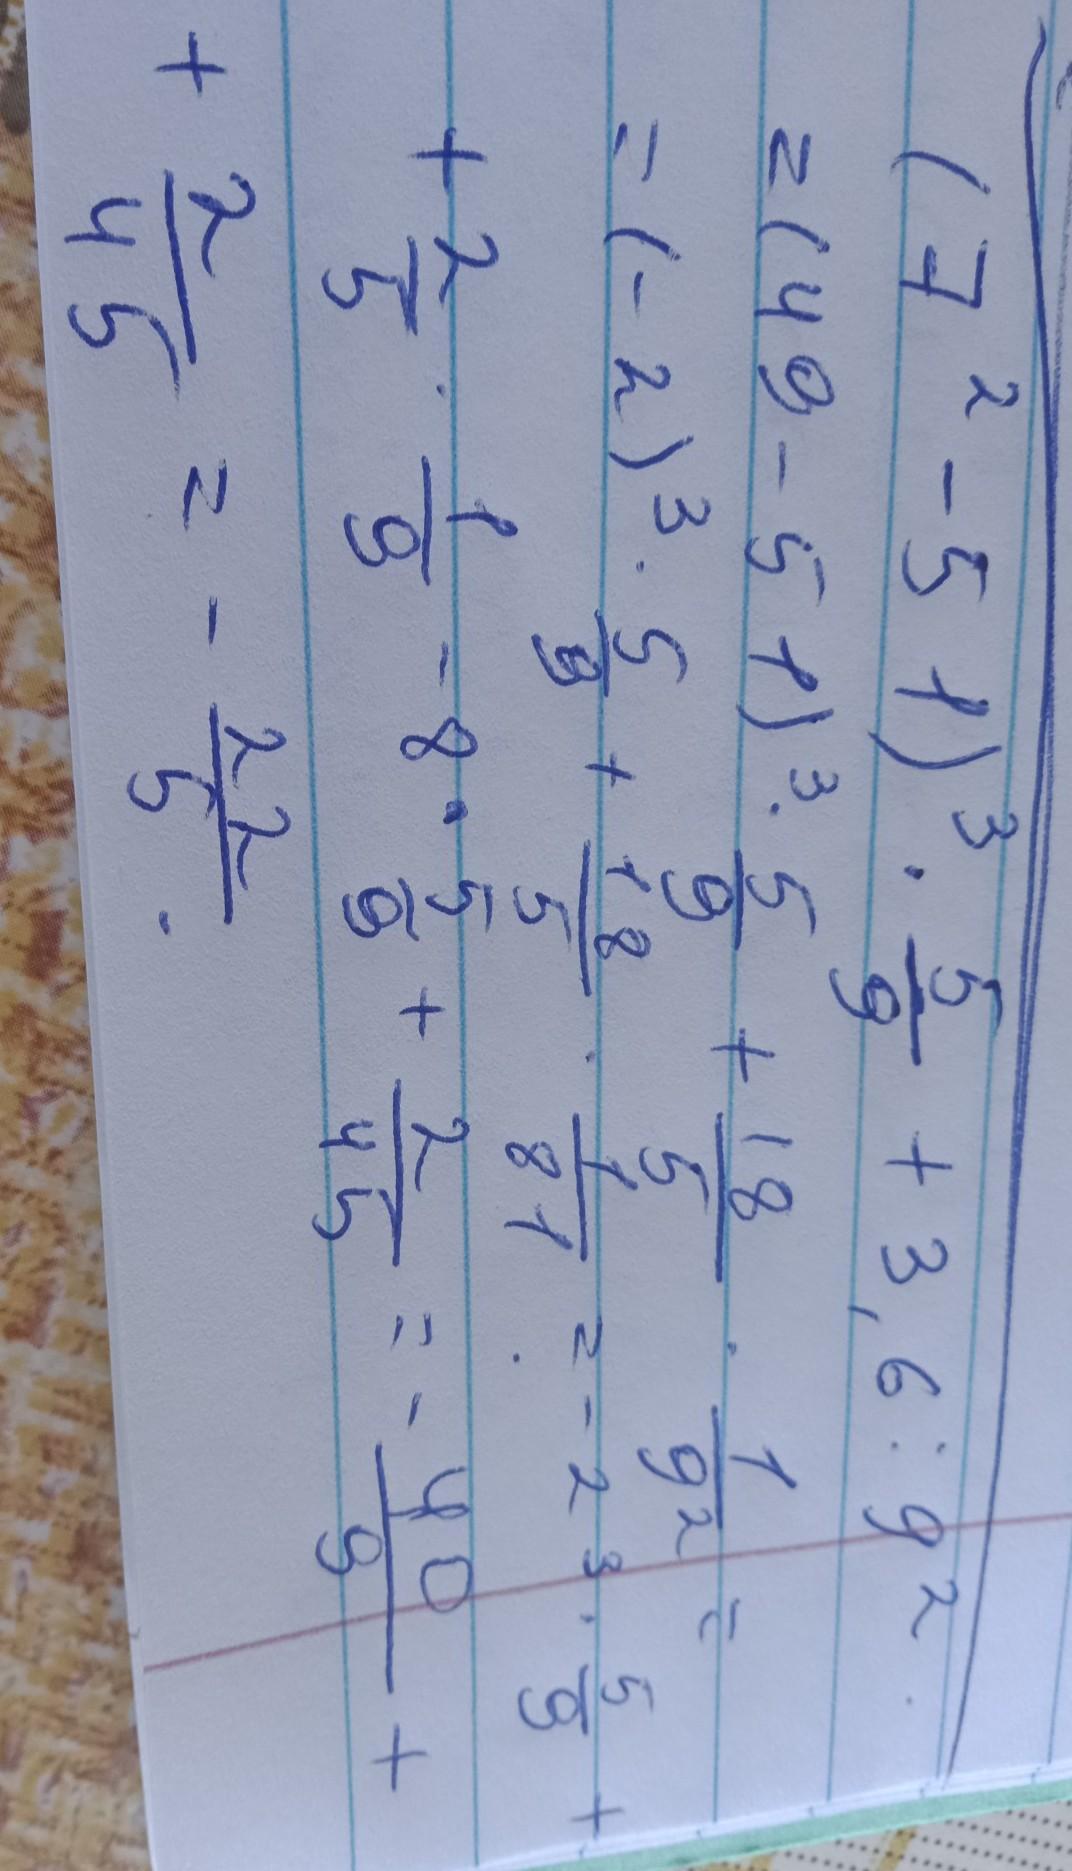 (7² - 51)³ · 5/9 + 3,6 : 9²
= (49 - 51)³ · 5/9 + 18/5 · 1/9² =
= (-2)³ · 5/9 + 18/5 · 1/81 = -2³ · 5/9 +
+ 2/5 · 1/9 - 8 · 5/9 + 2/45 = - 40/9 +
+ 2/45 = - 22/5.